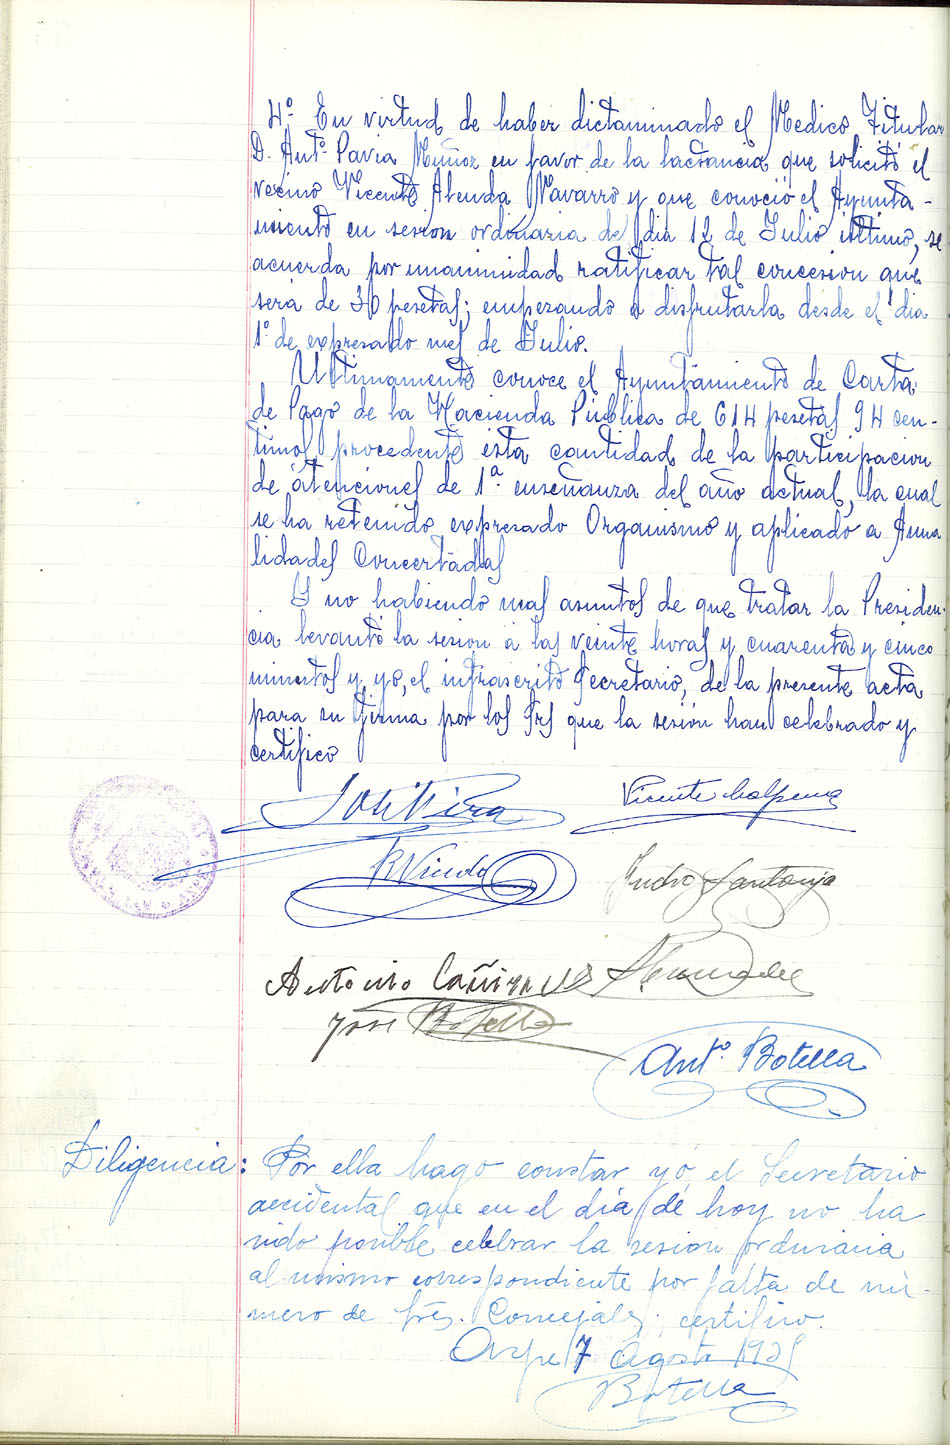 4º En virtud de haber dictaminado el Medico Titular
D. Antº Pavia Muñoz en favor de la lactancia que solicitó el
vecino Vicente Abenda Navarro y que conoció el Ayunta-
miento en sesion ordinaria del dia 12 de Julio ultimo, se
acuerda por unanimidad ratificar tal concesion que
será de 30 pesetas; empezando a disfrutarla desde el dia
1º de expresado mes de Julio.
Ultimamente conoce el Ayuntamiento de Carta
de Pago de la Hacienda Pública de 614 pesetas 94 cen-
timos procedente esta cantidad de la participacion
de atenciones de 1ª enseñanza del año actual, la cual
se ha retenido expresado Organismo y aplicado a Anua
lidades Concertadas
Y no habiendo mas asuntos de que tratar la Presiden-
cia levantó la sesion a las veinte horas y cuarenta y cinco
minutos y yo, el infrascrito Secretario, de la presente acta
para su firma por los Srs que la sesión han celebrado y
certifico
Vicente
Pedro Santonja
Antonio Cañizares
José Botella
Antº Botella
Diligencia: Por ella hago constar yó, el Secretario
accidental que en el día de hoy no ha
sido posible celebrar la sesion ordinaria
al mismo correspondiente por falta de nú-
mero de Sres. Concejales; certifico.
Aspe 7 Agosto
Botella